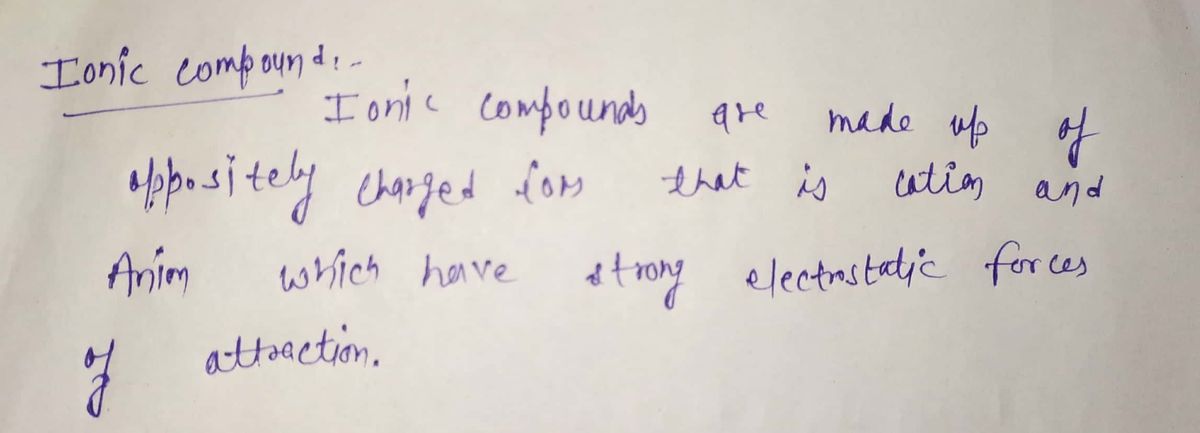 Ionic compound:-
Ionic compounds are made up of
oppositely charged ions that is cation and
Anion which have strong electrostatic forces
of attraction.